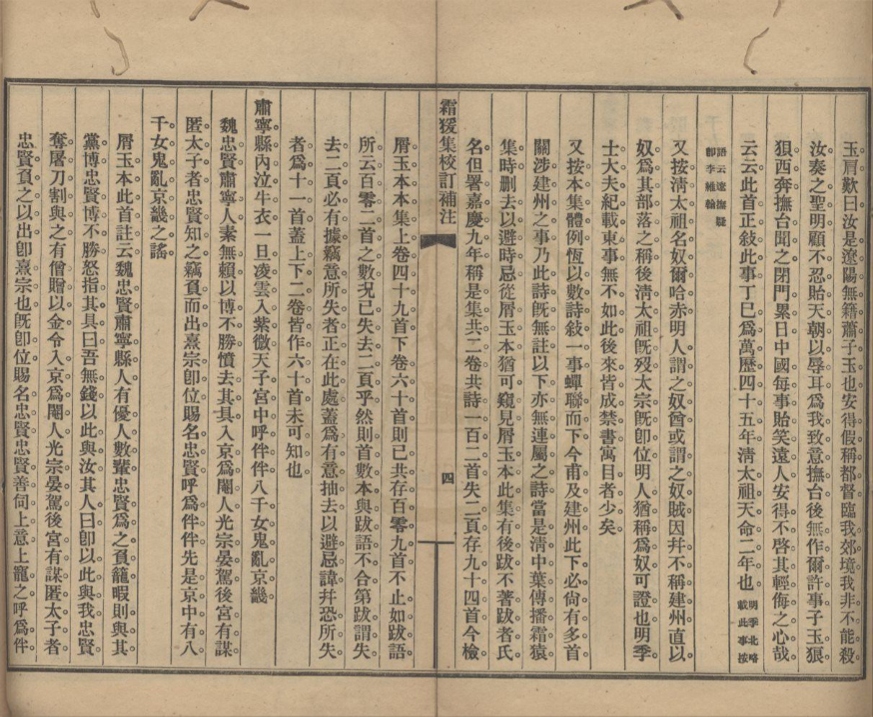 玉肩歎曰汝是遼陽無籍蕭子玉也安得假稱都督臨我郊境我非不能殺
汝奏之聖明顧不忍貽天朝以辱耳爲我致意撫台後無作爾許事子玉狼
狽西奔撫台聞之閉門累日中國每事貽笑遠人安得不啓其輕侮之心哉
云云此首正敍此事丁巳爲萬歷四十五年清太祖天命二年也明季北略載此事按
語云遼撫疑卽李維翰
又按清太祖名奴爾哈赤明人謂之奴酋或謂之奴賊因幷不稱建州直以
奴爲其部落之稱後清太祖旣歿太宗旣卽位明人猶稱爲奴可證也明季
士大夫紀載東事無不如此後來皆成禁書寓目者少矣
又按本集體例恆以數詩敍一事蟬聯而下今甫及建州此下必尙有多首
關涉建州之事乃此詩旣無註以下亦無連屬之詩當是清中葉傳播霜猿
集時删去以避時忌從屑玉本猶可窺見屑玉本此集有後跋不著跋者氏
名但署嘉慶九年稱是集共二卷共詩一百二首失二頁存九十四首今檢
霜猨集校訂補注
四
屑玉本本集上卷四十九首下卷六十首則已共存百零九首不止如跋語
所云百零二首之數況已失去二頁乎然則首數本與跋語不合第跋謂失
去二頁必有據竊意所失者正在此處蓋爲有意抽去以避忌諱幷恐所失
者爲十一首蓋上下二卷皆作六十首未可知也
肅寧縣內泣牛衣一旦凌雲入紫微天子宮中呼伴伴八千女鬼亂京畿
魏忠賢肅寧人素無賴以博不勝憤去其具入京爲閹人光宗晏駕後宮有謀
匿太子者忠賢知之竊負而出熹宗卽位賜名忠賢呼爲伴伴先是京中有八
千女鬼亂京畿之謠
屑玉本此首註云魏忠賢肅寧縣人有優人數輩忠賢爲之負籠暇則與其
黨博忠賢博不勝怒指其具曰吾無錢以此與汝其人曰卽以此與我忠賢
奪屠刀割與之有僧贈以金令入京爲閹人光宗晏駕後宮有謀匿太子者
忠賢負之以出卽熹宗也旣卽位賜名忠賢忠賢善伺上意上寵之呼爲伴